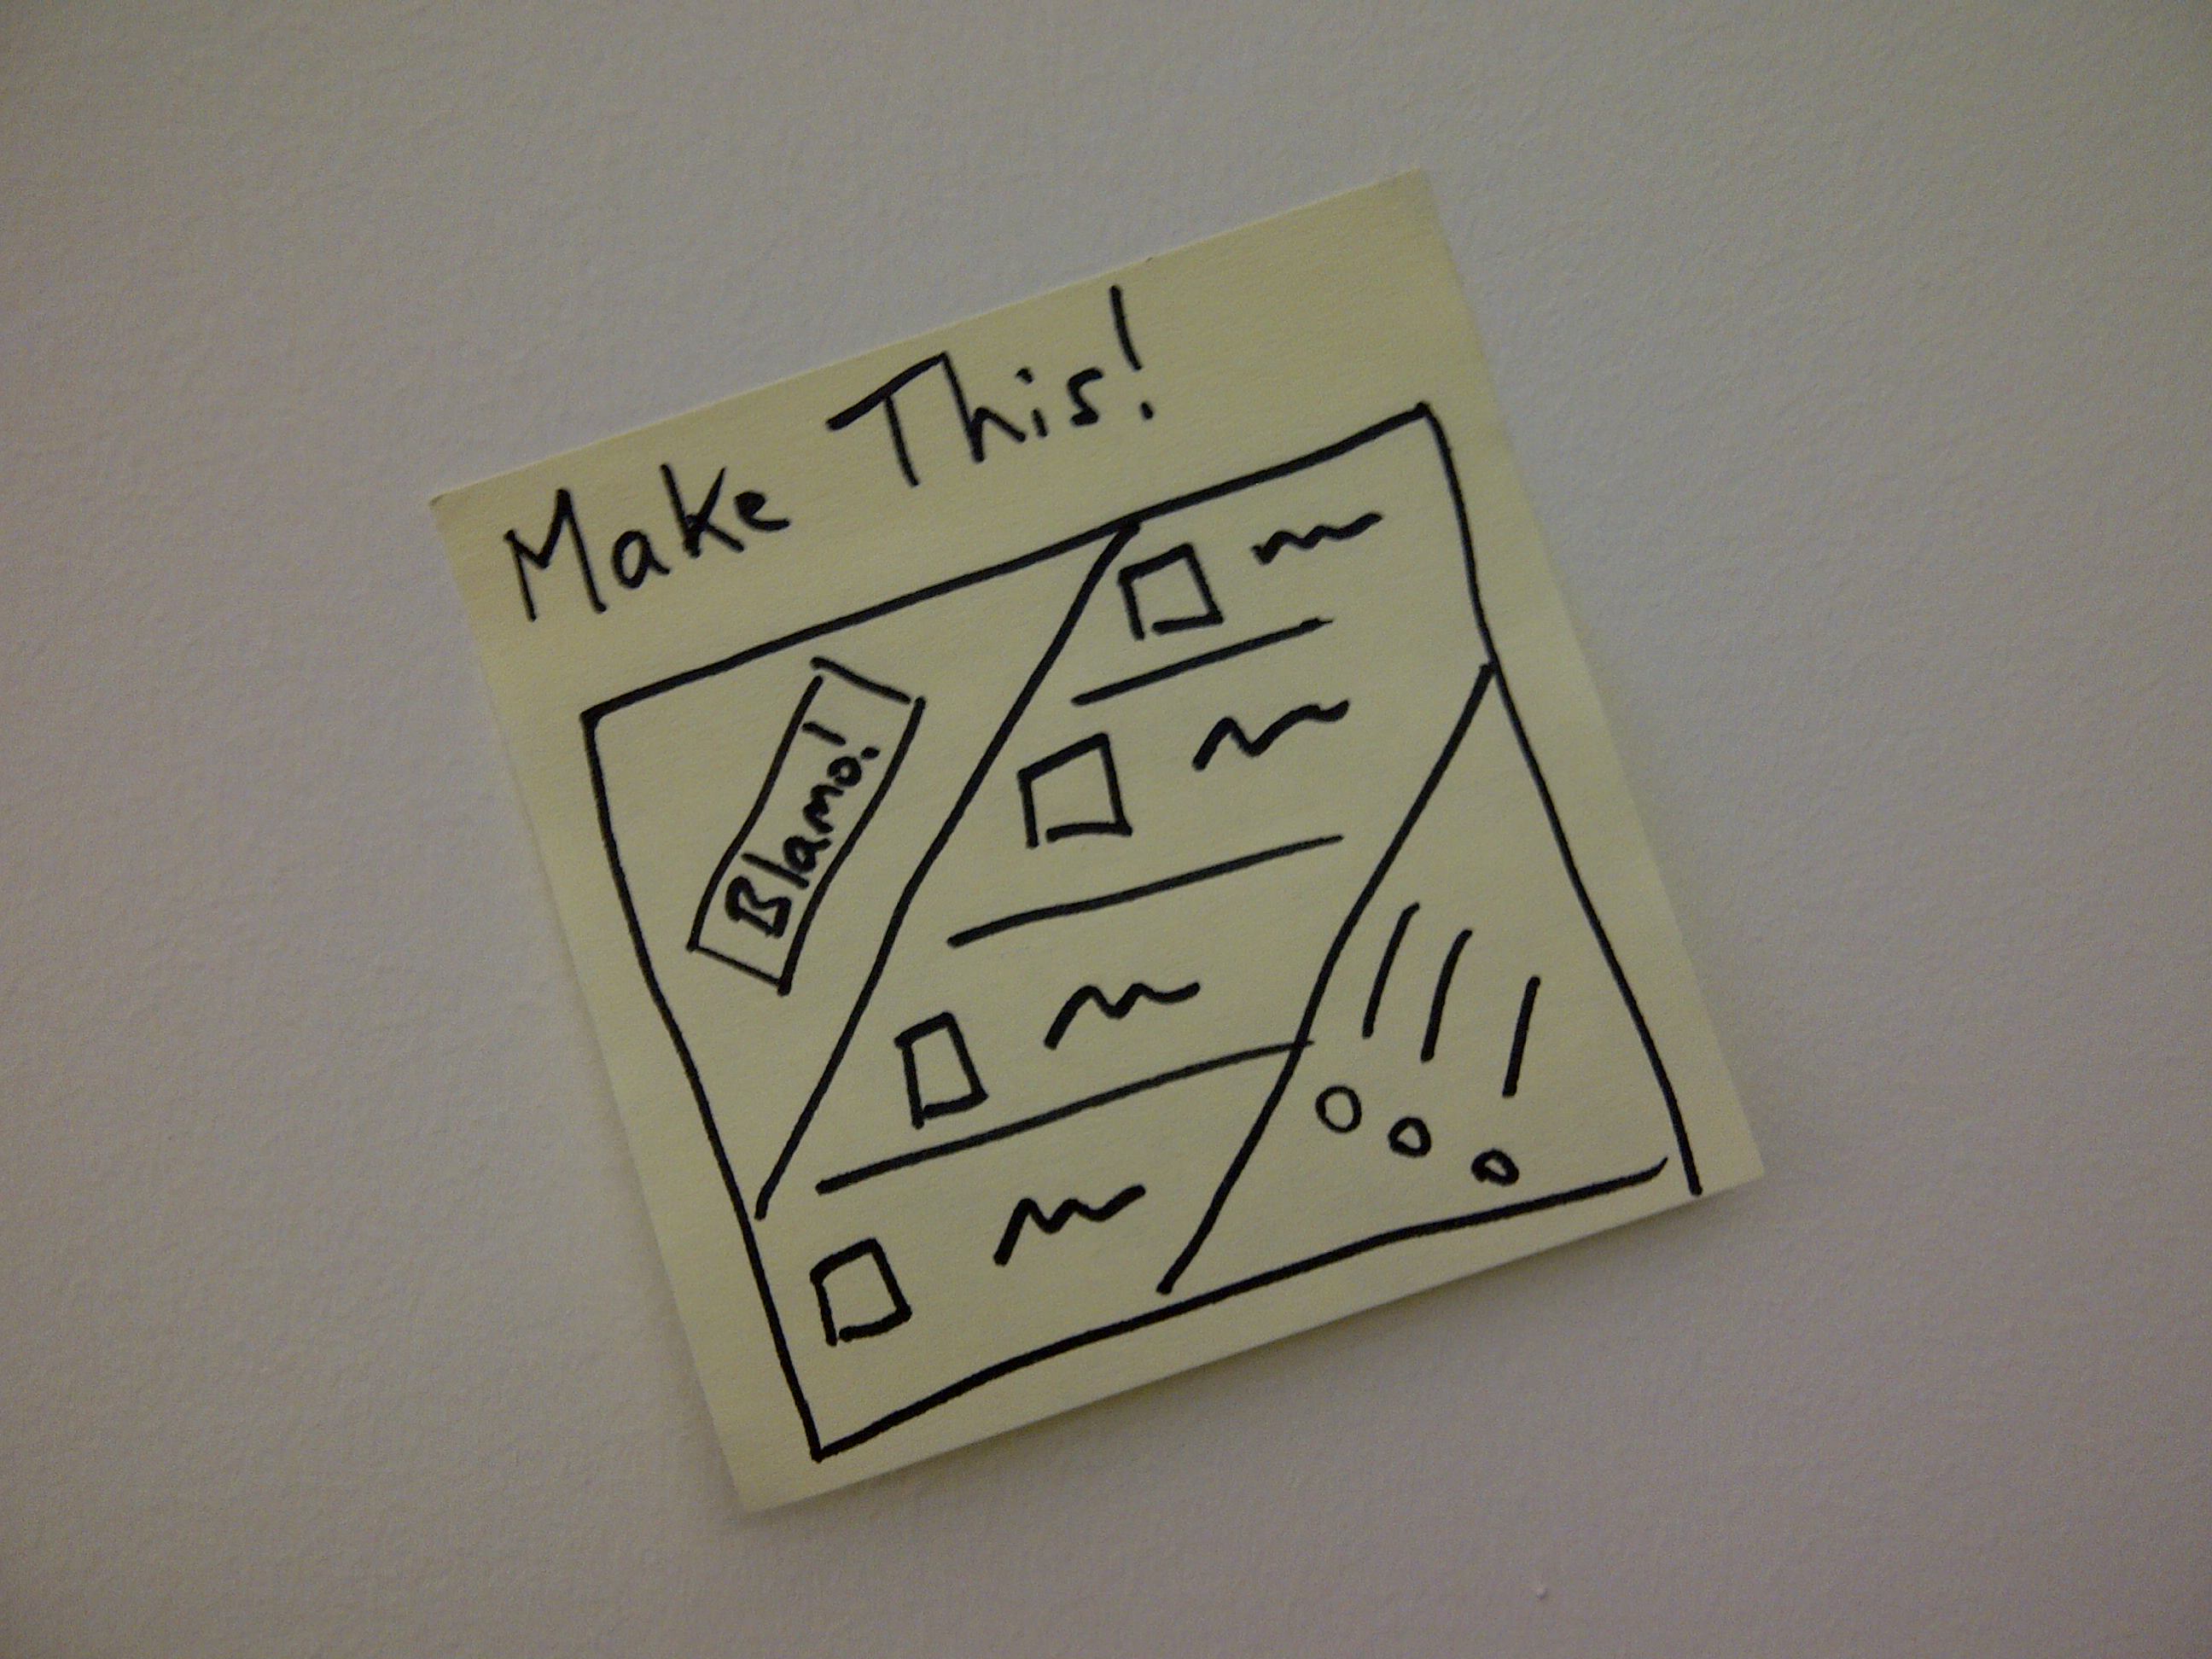 Make This!
Blamo!